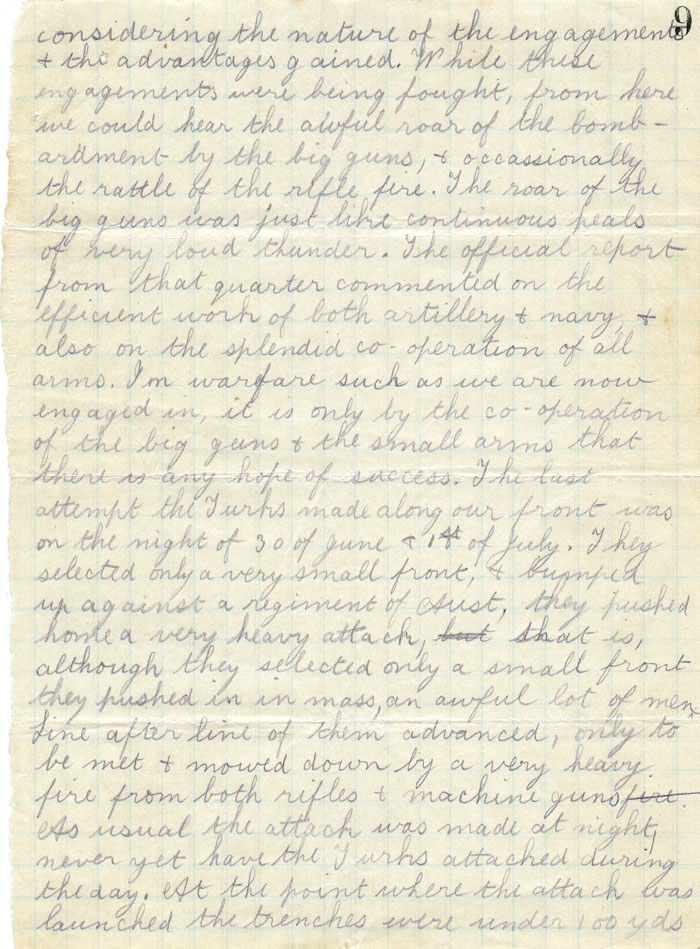 9
considering the nature of the engagements
& the advantages gained. While these
engagements were being fought, from here
we could hear the awful roar of the bomb-
ardment by the big guns, & occassionally
the rattle of the rifle fire. The roar of the
big guns was just like continuous peals
of very loud thunder. The official report
from that quarter commented on the
efficient work of both artillery & navy, &
also on the splendid co-operation of all
arms. In warfare such as we are now
engaged in, it is only by the co-operation
of the big guns & the small arms that
there is any hope of success. The last
attempt the Turks made along our front was
on the night of 30 of June & 1st of July. They
selected only a very small front, & bumped
up against a regiment of Aust, they pushed
home a very heavy attack, but that is,
although they selected only a small front
they pushed in in mass, an awful lot of men
Line after line of them advanced, only to
be met & mowed down by a very heavy
fire from both rifles & machine guns fire.
As usual the attack was made at night,
never yet have the Turks attached during
the day. At the point where the attack was
launched the trenches were under 100 yds